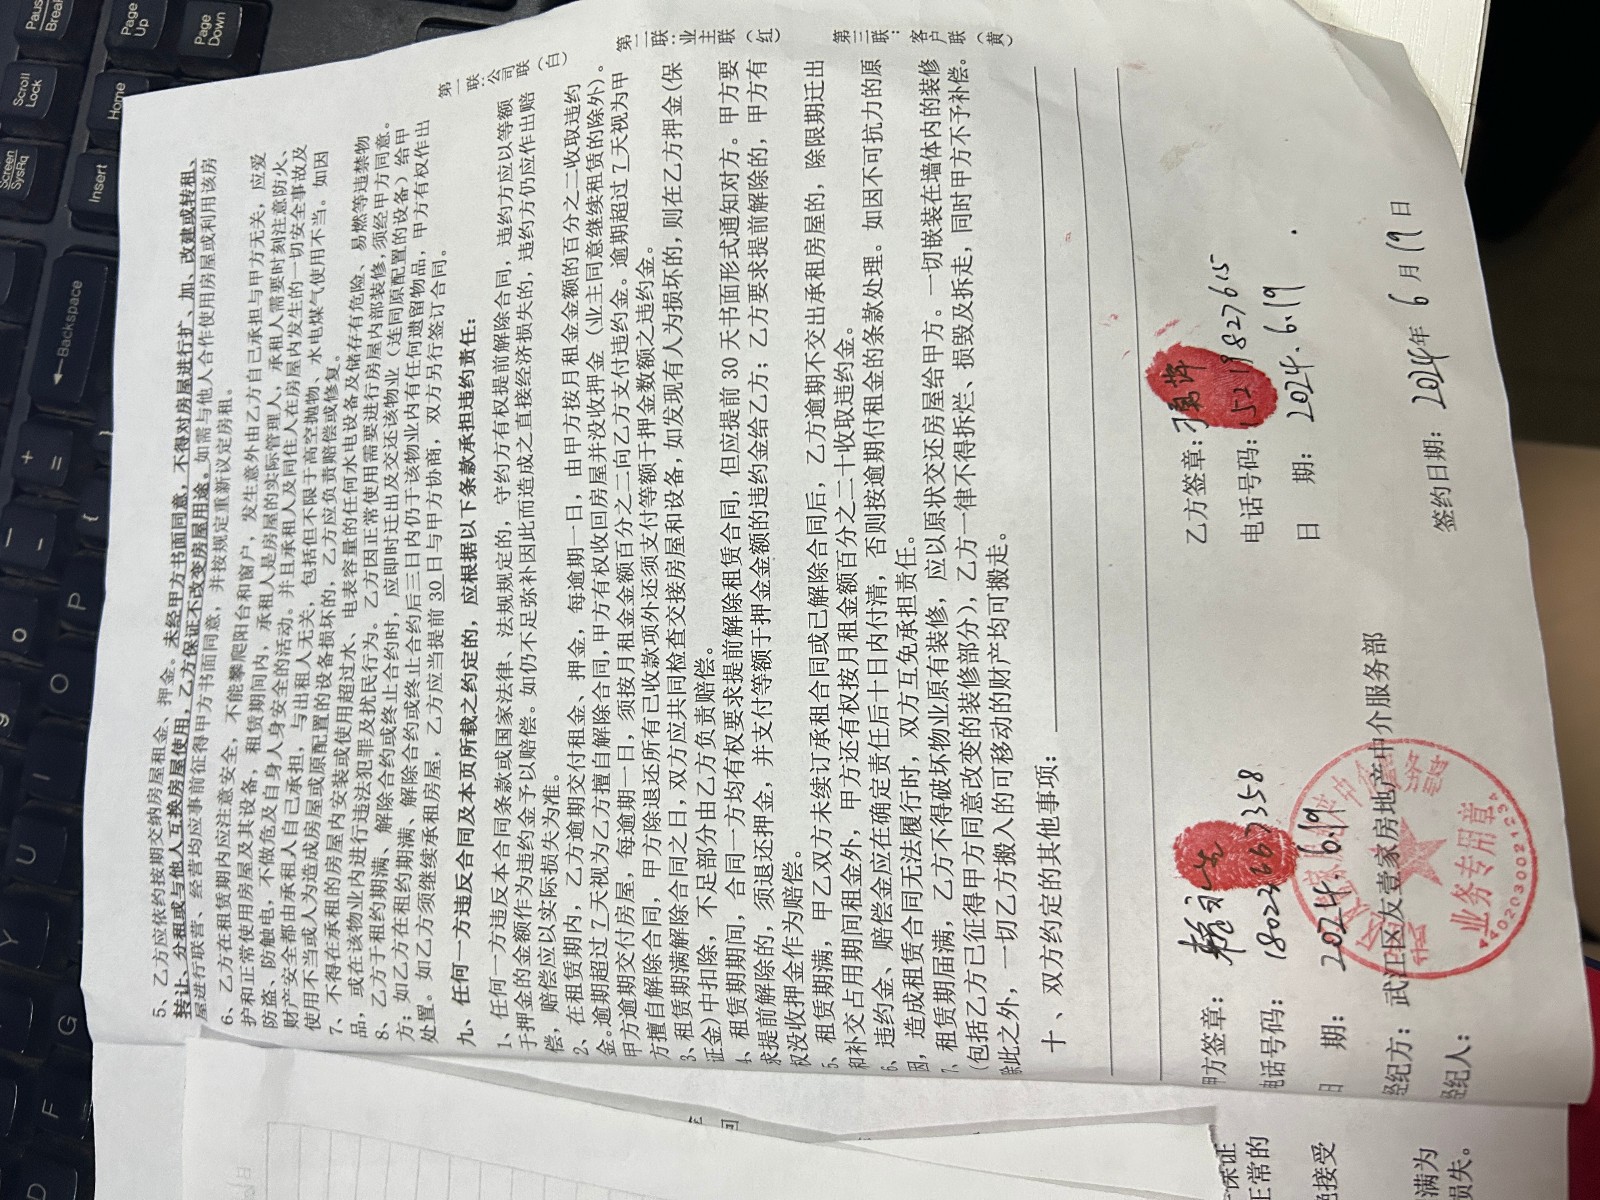 5、乙方应依约按期交纳房屋租金、押金。未经甲方书面同意，不得对房屋进行扩、加、改建或转租、
转让、分租或与他人互换房屋使用，乙方保证不改变房屋用途。如需与他人合作使用房屋或利用该房
屋进行联营、经营均应事前征得甲方书面同意，并按规定重新议定房租。
6、乙方在租赁期内应注意安全，不能攀爬阳台和窗户，发生意外由乙方自己承担与甲方无关，应爱
护和正常使用房屋及其设备，租赁期间内，承租人是房屋的实际管理人，承租人需要时刻注意防火、
防盗、防触电，不做危及自身人身安全的活动。并且承租人及同住人在房屋内发生的一切安全事故及
财产安全都由承租人自己承担，与出租人无关，包括但不限于高空抛物、水电煤气使用不当。如因
使用不当或人为造成房屋或原配置的设备损坏的，乙方应负责赔偿或修复。
7、不得在承租的房屋内安装或使用超过水、电表容量的任何水电设备及储存有危险、易燃等违禁物
品，或在该物业内进行违法犯罪及扰民行为。乙方因正常使用需要进行房屋内部装修，须经甲方同意。
8、乙方于租约期满、解除合约或终止合约时，应即时迁出及交还该物业（连同原配置的设备）给甲
方；如乙方在租约期满、解除合约或终止合约后三日内仍于该物业内有任何遗留物品，甲方有权作出
处置。如乙方须继续承租房屋，乙方应当提前 30 日与甲方协商，双方另行签订合同。
九、任何一方违反合同及本页所载之约定的，应根据以下条款承担违约责任：
1、任何一方违反本合同条款或国家法律、法规规定的，守约方有权提前解除合同，违约方应以等额
于押金的金额作为违约金予以赔偿。如仍不足弥补因此而造成之直接经济损失的，违约方仍应作出赔
偿，赔偿应以实际损失为准。
2、在租赁期内，乙方逾期交付租金、押金，每逾期一日，由甲方按月租金金额的百分之二收取违约
金。逾期超过 7 天视为乙方擅自解除合同，甲方有权收回房屋并没收押金（业主同意继续租赁的除外）。
甲方逾期交付房屋，每逾期一日，须按月租金金额百分之二向乙方支付违约金。逾期超过 7 天视为甲
方擅自解除合同，甲方除退还所有已收款项外还须支付等额于押金数额之违约金。
3、租赁期满解除合同之日，双方应共同检查交接房屋和设备，如发现有人为损坏的，则在乙方押金（保
证金）中扣除，不足部分由乙方负责赔偿。
4、租赁期期间，合同一方均有权要求提前解除租赁合同，但应提前 30 天书面形式通知对方。甲方要
求提前解除的，须退还押金，并支付等额于押金金额的违约金给乙方；乙方要求提前解除的，甲方有
权没收押金作为赔偿。
5、租赁期满，甲乙双方未续订承租合同或已解除合同后，乙方逾期不交出承租房屋的，除限期迁出
和补交占用期间租金外，甲方还有权按月租金额百分之二十收取违约金。
6、违约金、赔偿金应在确定责任后十日内付清，否则按逾期付租金的条款处理。如因不可抗力的原
因，造成租赁合同无法履行时，双方互免承担责任。
7、租赁期届满，乙方不得破坏物业原有装修，应以原状交还房屋给甲方。一切嵌装在墙体内的装修
（包括乙方已征得甲方同意改变的装修部分），乙方一律不得拆烂、损毁及拆走，同时甲方不予补偿。
除此之外，一切乙方搬入的可移动的财产均可搬走。
十、双方约定的其他事项：
甲方签章：
电话号码：18023667358
日 期：2024.6.19
经纪方：武江区友壹家房地产中介服务部
经纪人：
乙方签章：
电话号码：15219827615
日 期：2024.6.19
签约日期：2024年 6 月 19 日
业务专用章
第一联：公司联（白）
第二联：业主联（红）
第三联：客户联（黄）
Page Up
Page Down
Scroll Lock
Home
Insert
Backspace